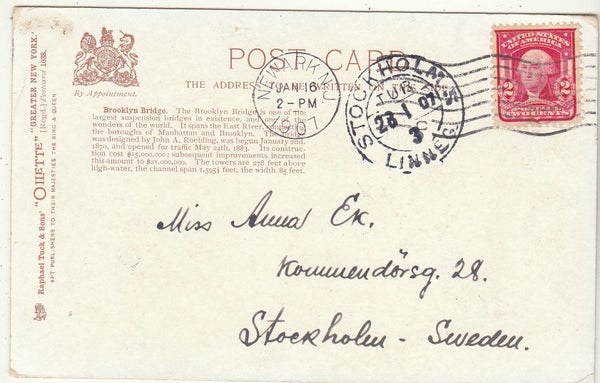 POST CARD
THE ADDRESS TO BE WRITTEN ON THIS SIDE
By Appointment.
Brooklyn Bridge. The Brooklyn Bridge is one of the
largest suspension bridges in existence, and
wonders of the world. It spans the East River, connecting
the boroughs of Manhattan and Brooklyn. The
was designed by John A. Roebling, was begun January 2nd,
1870, and opened for traffic May 24th, 1883. In construc-
tion cost $15,000,000; subsequent improvements increased
this amount to $21,000,000. The towers are 278 feet above
high-water, the channel span 1,595½ feet, the width 85 feet.
Raphael Tuck & Sons' "OILETTE" "GREATER NEW YORK."
[Regd.] Postcard 1038.
ART PUBLISHERS TO THEIR MAJESTIES THE KING & QUEEN
NEWARK, N.J.
JAN 16
2-PM
1907
STOCKHOLM
28 1 07
3
LINNÉG
UNITED STATES
OF AMERICA
2 2
TWO CENTS
Miss Anna Ek.
Kommendörsg. 28.
Stockholm - Sweden.